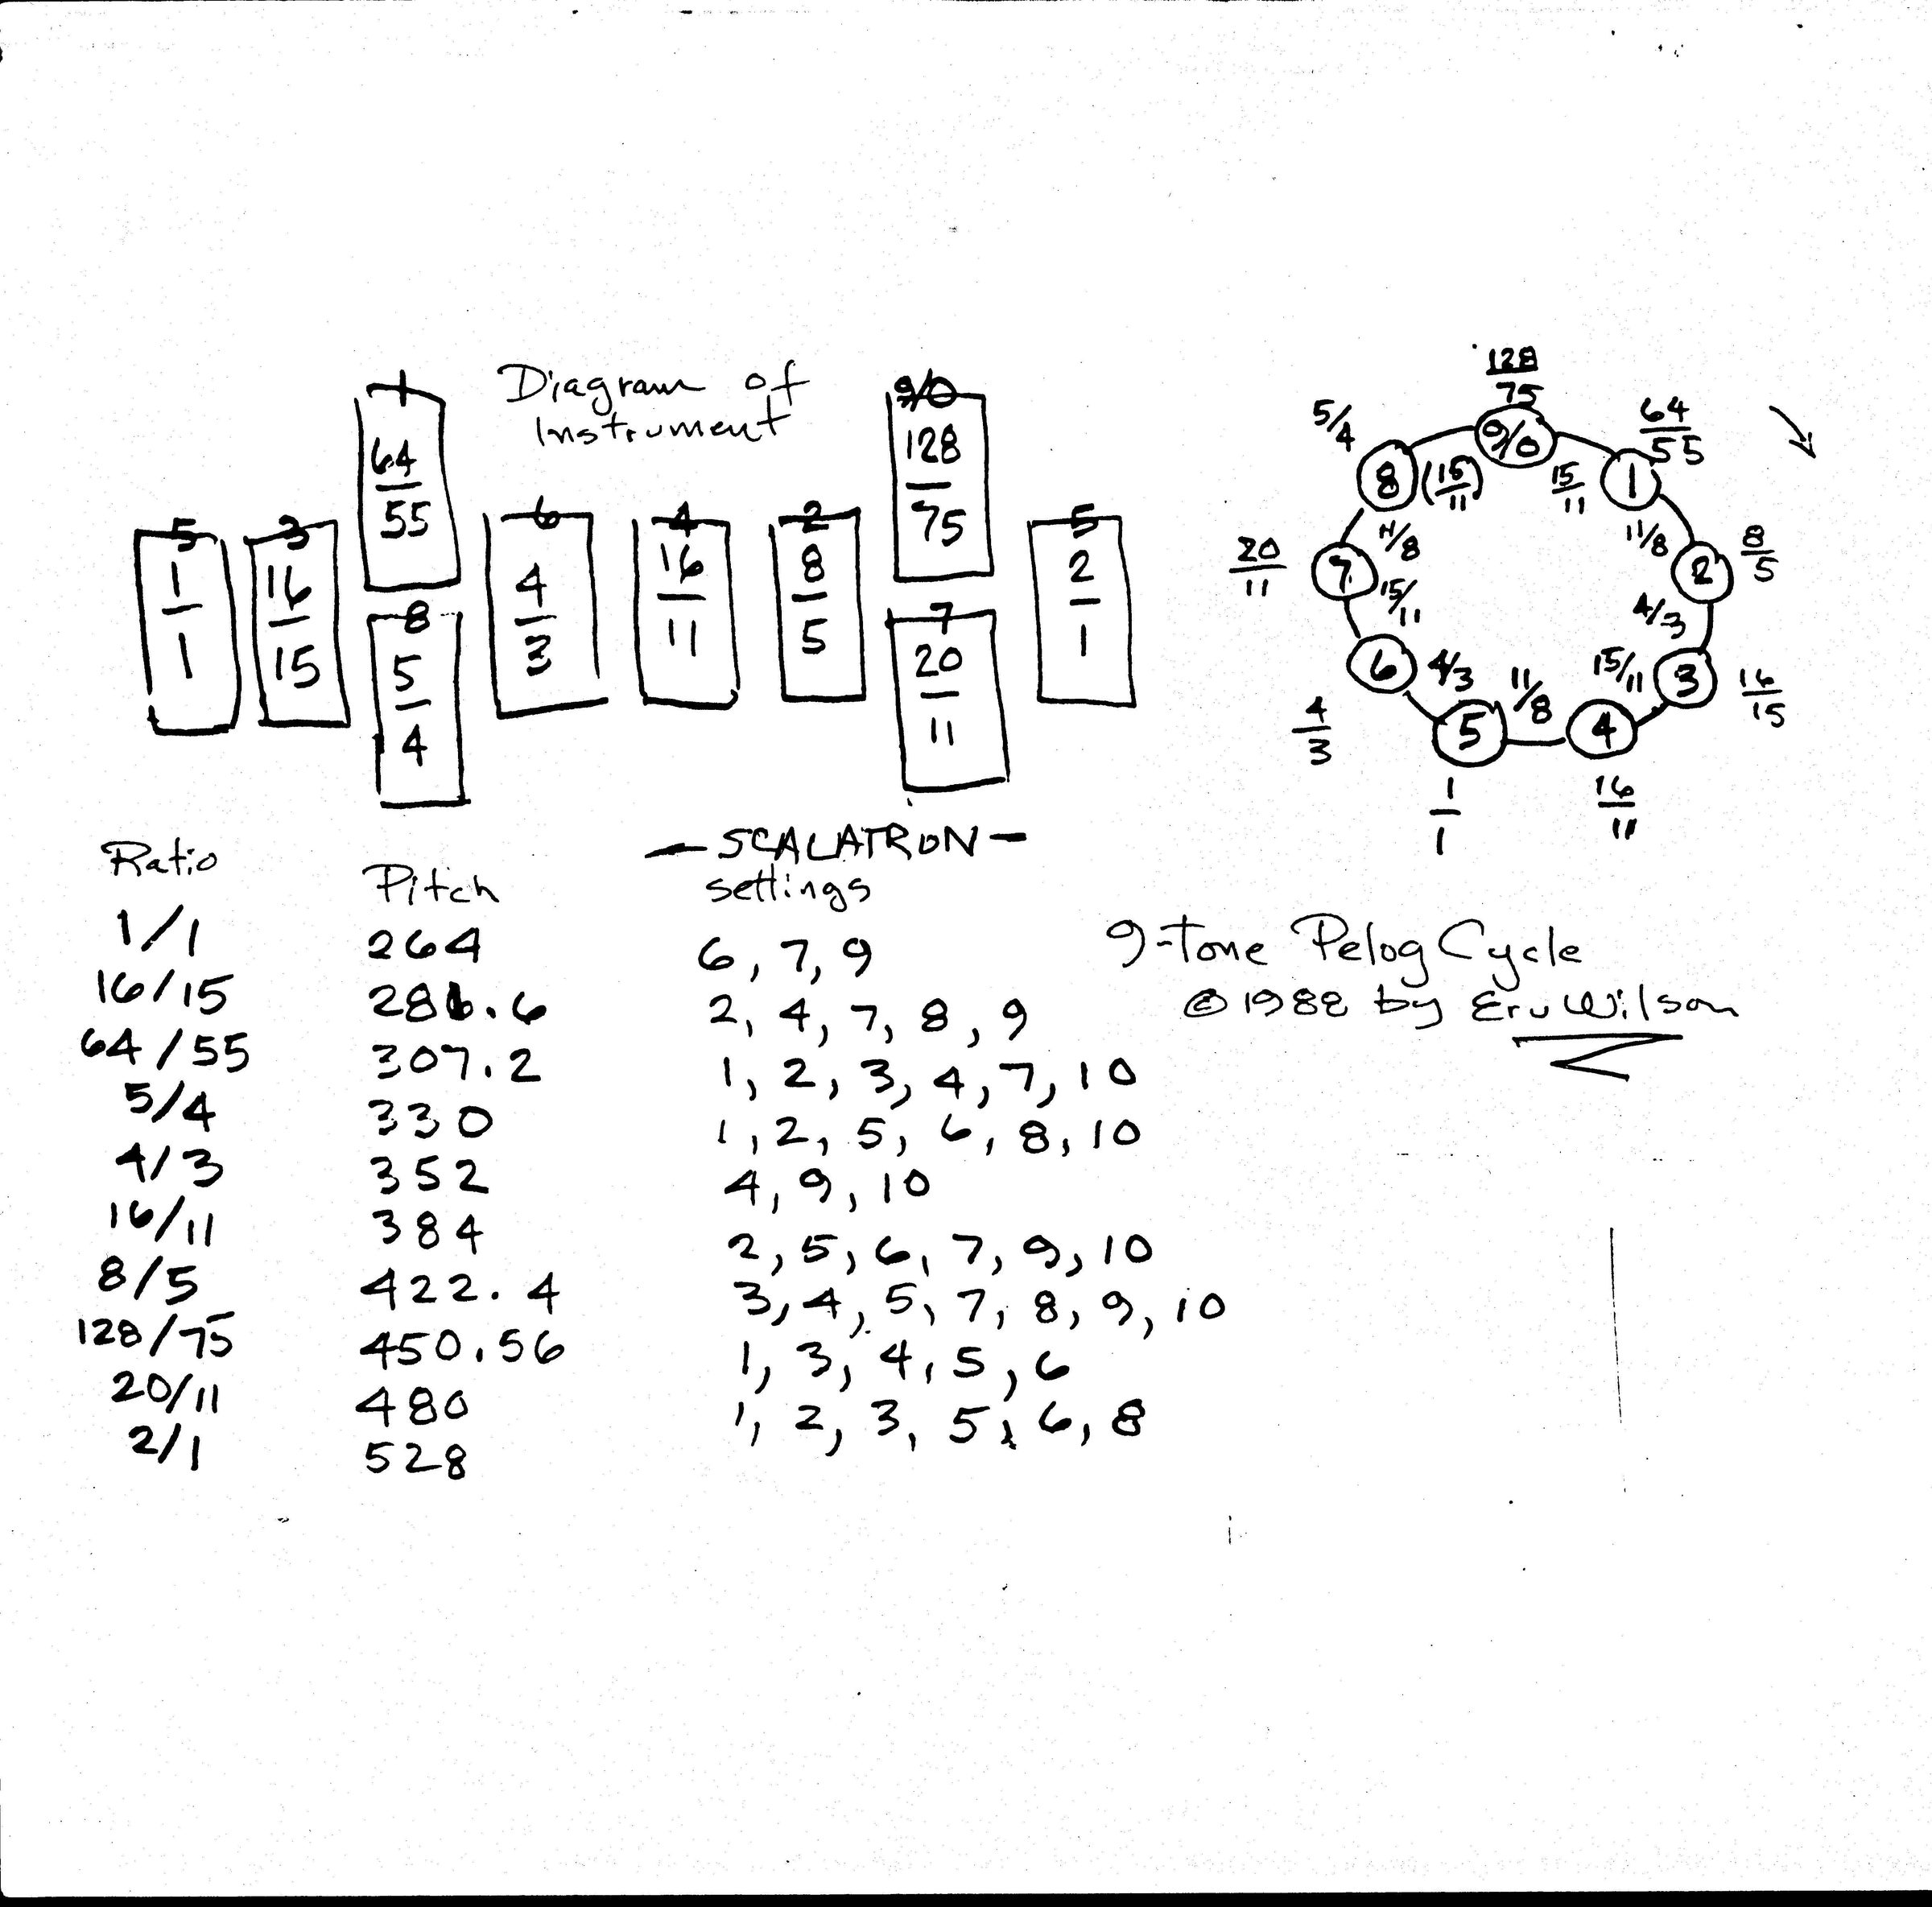 Diagram of
Instrument
1
64/55
9/0
128/75
5
1/1
3
16/15
8
5/4
6
4/3
4
16/11
2
8/5
7
20/11
5
2/1
128/75
9/0
64/55
1
15/11
11/8
8/5
2
4/3
16/15
3
15/11
16/11
4
11/8
1/1
5
4/3
4/3
6
15/11
20/11
7
11/8
5/4
8
(15/11)
Ratio Pitch —SCALATRON—
settings
1/1 264 6, 7, 9
16/15 281.6 2, 4, 7, 8, 9
64/55 307.2 1, 2, 3, 4, 7, 10
5/4 330 1, 2, 5, 6, 8, 10
4/3 352 4, 9, 10
16/11 384 2, 5, 6, 7, 9, 10
8/5 422.4 3, 4, 5, 7, 8, 9, 10
128/75 450.56 1, 3, 4, 5, 6
20/11 480 1, 2, 3, 5, 6, 8
2/1 528
9-Tone Pelog Cycle
©1988 by Erv Wilson